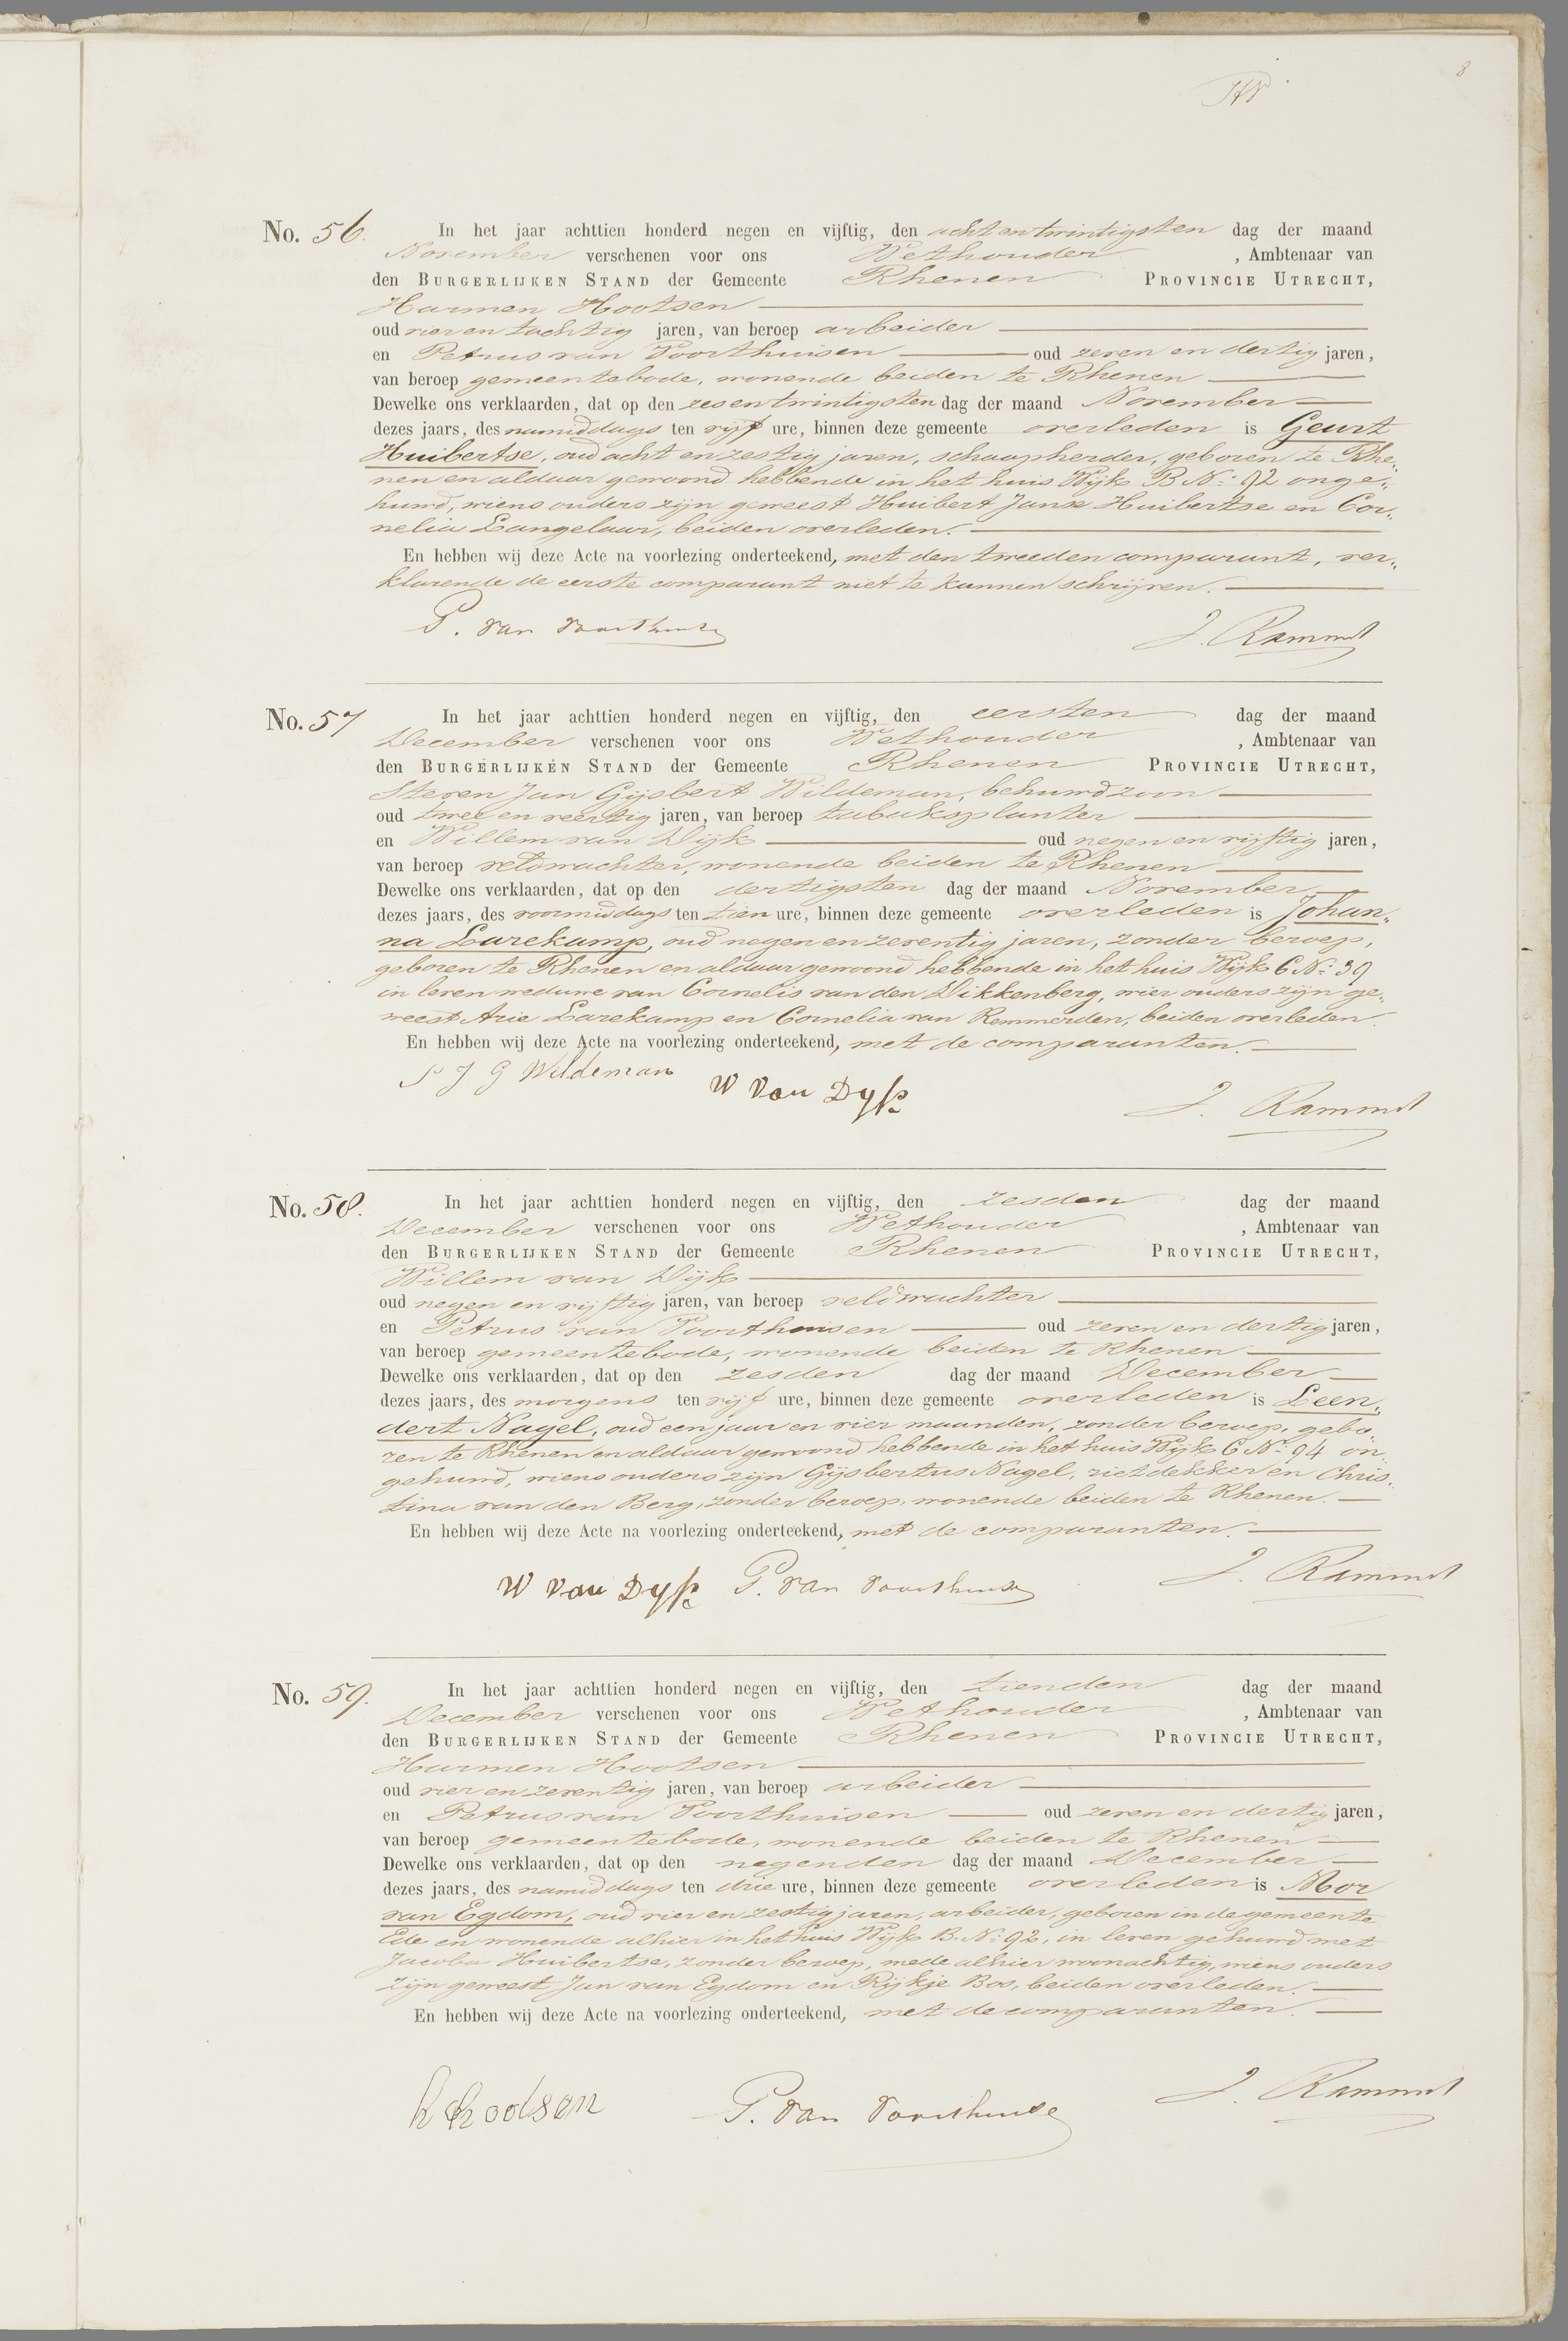 8
No. 56. In het jaar achttien honderd negen en vijftig, den acht en twintigsten dag der maand
November verschenen voor ons Wethouder, Ambtenaar van
den BURGERLIJKEN STAND der Gemeente Rhenen PROVINCIE UTRECHT,
Harmen Hootsen
oud vier en tachtig jaren, van beroep arbeider
en Petrus van Voorthuisen oud zeven en dertig jaren,
van beroep gemeentebode, wonende beiden te Rhenen
Dewelke ons verklaarden, dat op den zes en twintigsten dag der maand November
dezes jaars, des namiddags ten vijf ure, binnen deze gemeente overleden is Geurt
Huibertse, oud acht en zestig jaren, schaapherder, geboren te Rhe„
nen en aldaar gewoond hebbende in het huis Wijk B No: 92 onge„
huwd, wiens ouders zijn geweest Huibert Janse Huibertse en Cor„
nelia Langelaar, beiden overleden.
En hebben wij deze Acte na voorlezing onderteekend, met den tweeden comparant, ver„
klarende de eerste comparant niet te kunnen schrijven.
P. van Voorthuise J. Rammelt
No. 57 In het jaar achttien honderd negen en vijftig, den eersten dag der maand
December verschenen voor ons Wethouder, Ambtenaar van
den BURGERLIJKEN STAND der Gemeente Rhenen PROVINCIE UTRECHT,
Steven Jan Gijsbert Wildeman, behuwdzoon
oud twee en veertig jaren, van beroep tabaksplanter
en Willem van Dijk oud negen en vijftig jaren,
van beroep veldwachter, wonende beiden te Rhenen
Dewelke ons verklaarden, dat op den dertigsten dag der maand November
dezes jaars, des voormiddags ten tien ure, binnen deze gemeente overleden is Johan„
na Larekamp, oud negen en zeventig jaren, zonder beroep,
geboren te Rhenen en aldaar gewoond hebbende in het huis Wijk C No: 39
in leven weduwe van Cornelis van den Dikkenberg, wier ouders zijn ge„
weest Arie Larekamp en Cornelia van Remmerden, beiden overleden.
En hebben wij deze Acte na voorlezing onderteekend, met de comparanten.
S J G Wildeman W van Dyk J. Rammelt
No. 58. In het jaar achttien honderd negen en vijftig, den zesden dag der maand
December verschenen voor ons Wethouder, Ambtenaar van
den BURGERLIJKEN STAND der Gemeente Rhenen PROVINCIE UTRECHT,
Willem van Dijk
oud negen en vijftig jaren, van beroep veldwachter
en Petrus van Voorthuisen oud zeven en dertig jaren,
van beroep gemeentebode, wonende beiden te Rhenen
Dewelke ons verklaarden, dat op den zesden dag der maand December
dezes jaars, des morgens ten vijf ure, binnen deze gemeente overleden is Leen„
dert Nagel, oud een jaar en vier maanden, zonder beroep, gebo„
ren te Rhenen en aldaar gewoond hebbende in het huis Wijk C No: 94 on„
gehuwd, wiens ouders zijn Gijsbertus Nagel, rietdekker en Chris„
tina van den Berg, zonder beroep, wonende beiden te Rhenen.
En hebben wij deze Acte na voorlezing onderteekend, met de comparanten.
W van Dyk P. van Voorthuise J. Rammelt
No. 59. In het jaar achttien honderd negen en vijftig, den tienden dag der maand
December verschenen voor ons Wethouder, Ambtenaar van
den BURGERLIJKEN STAND der Gemeente Rhenen PROVINCIE UTRECHT,
Harmen Hootsen
oud vier en zeventig jaren, van beroep arbeider
en Petrus van Voorthuisen oud zeven en dertig jaren,
van beroep gemeentebode, wonende beiden te Rhenen
Dewelke ons verklaarden, dat op den negenden dag der maand December
dezes jaars, des namiddags ten drie ure, binnen deze gemeente overleden is Mor
van Egdom, oud vier en zestig jaren, arbeider, geboren in de gemeente
Ede en wonende alhier in het huis Wijk B. No: 92, in leven gehuwd met
Jacoba Huibertse, zonder beroep, mede alhier woonachtig, wiens ouders
zijn geweest Jan van Egdom en Rijkje Bos, beiden overleden.
En hebben wij deze Acte na voorlezing onderteekend, met de comparanten.
P. van Voorthuise J. Rammelt